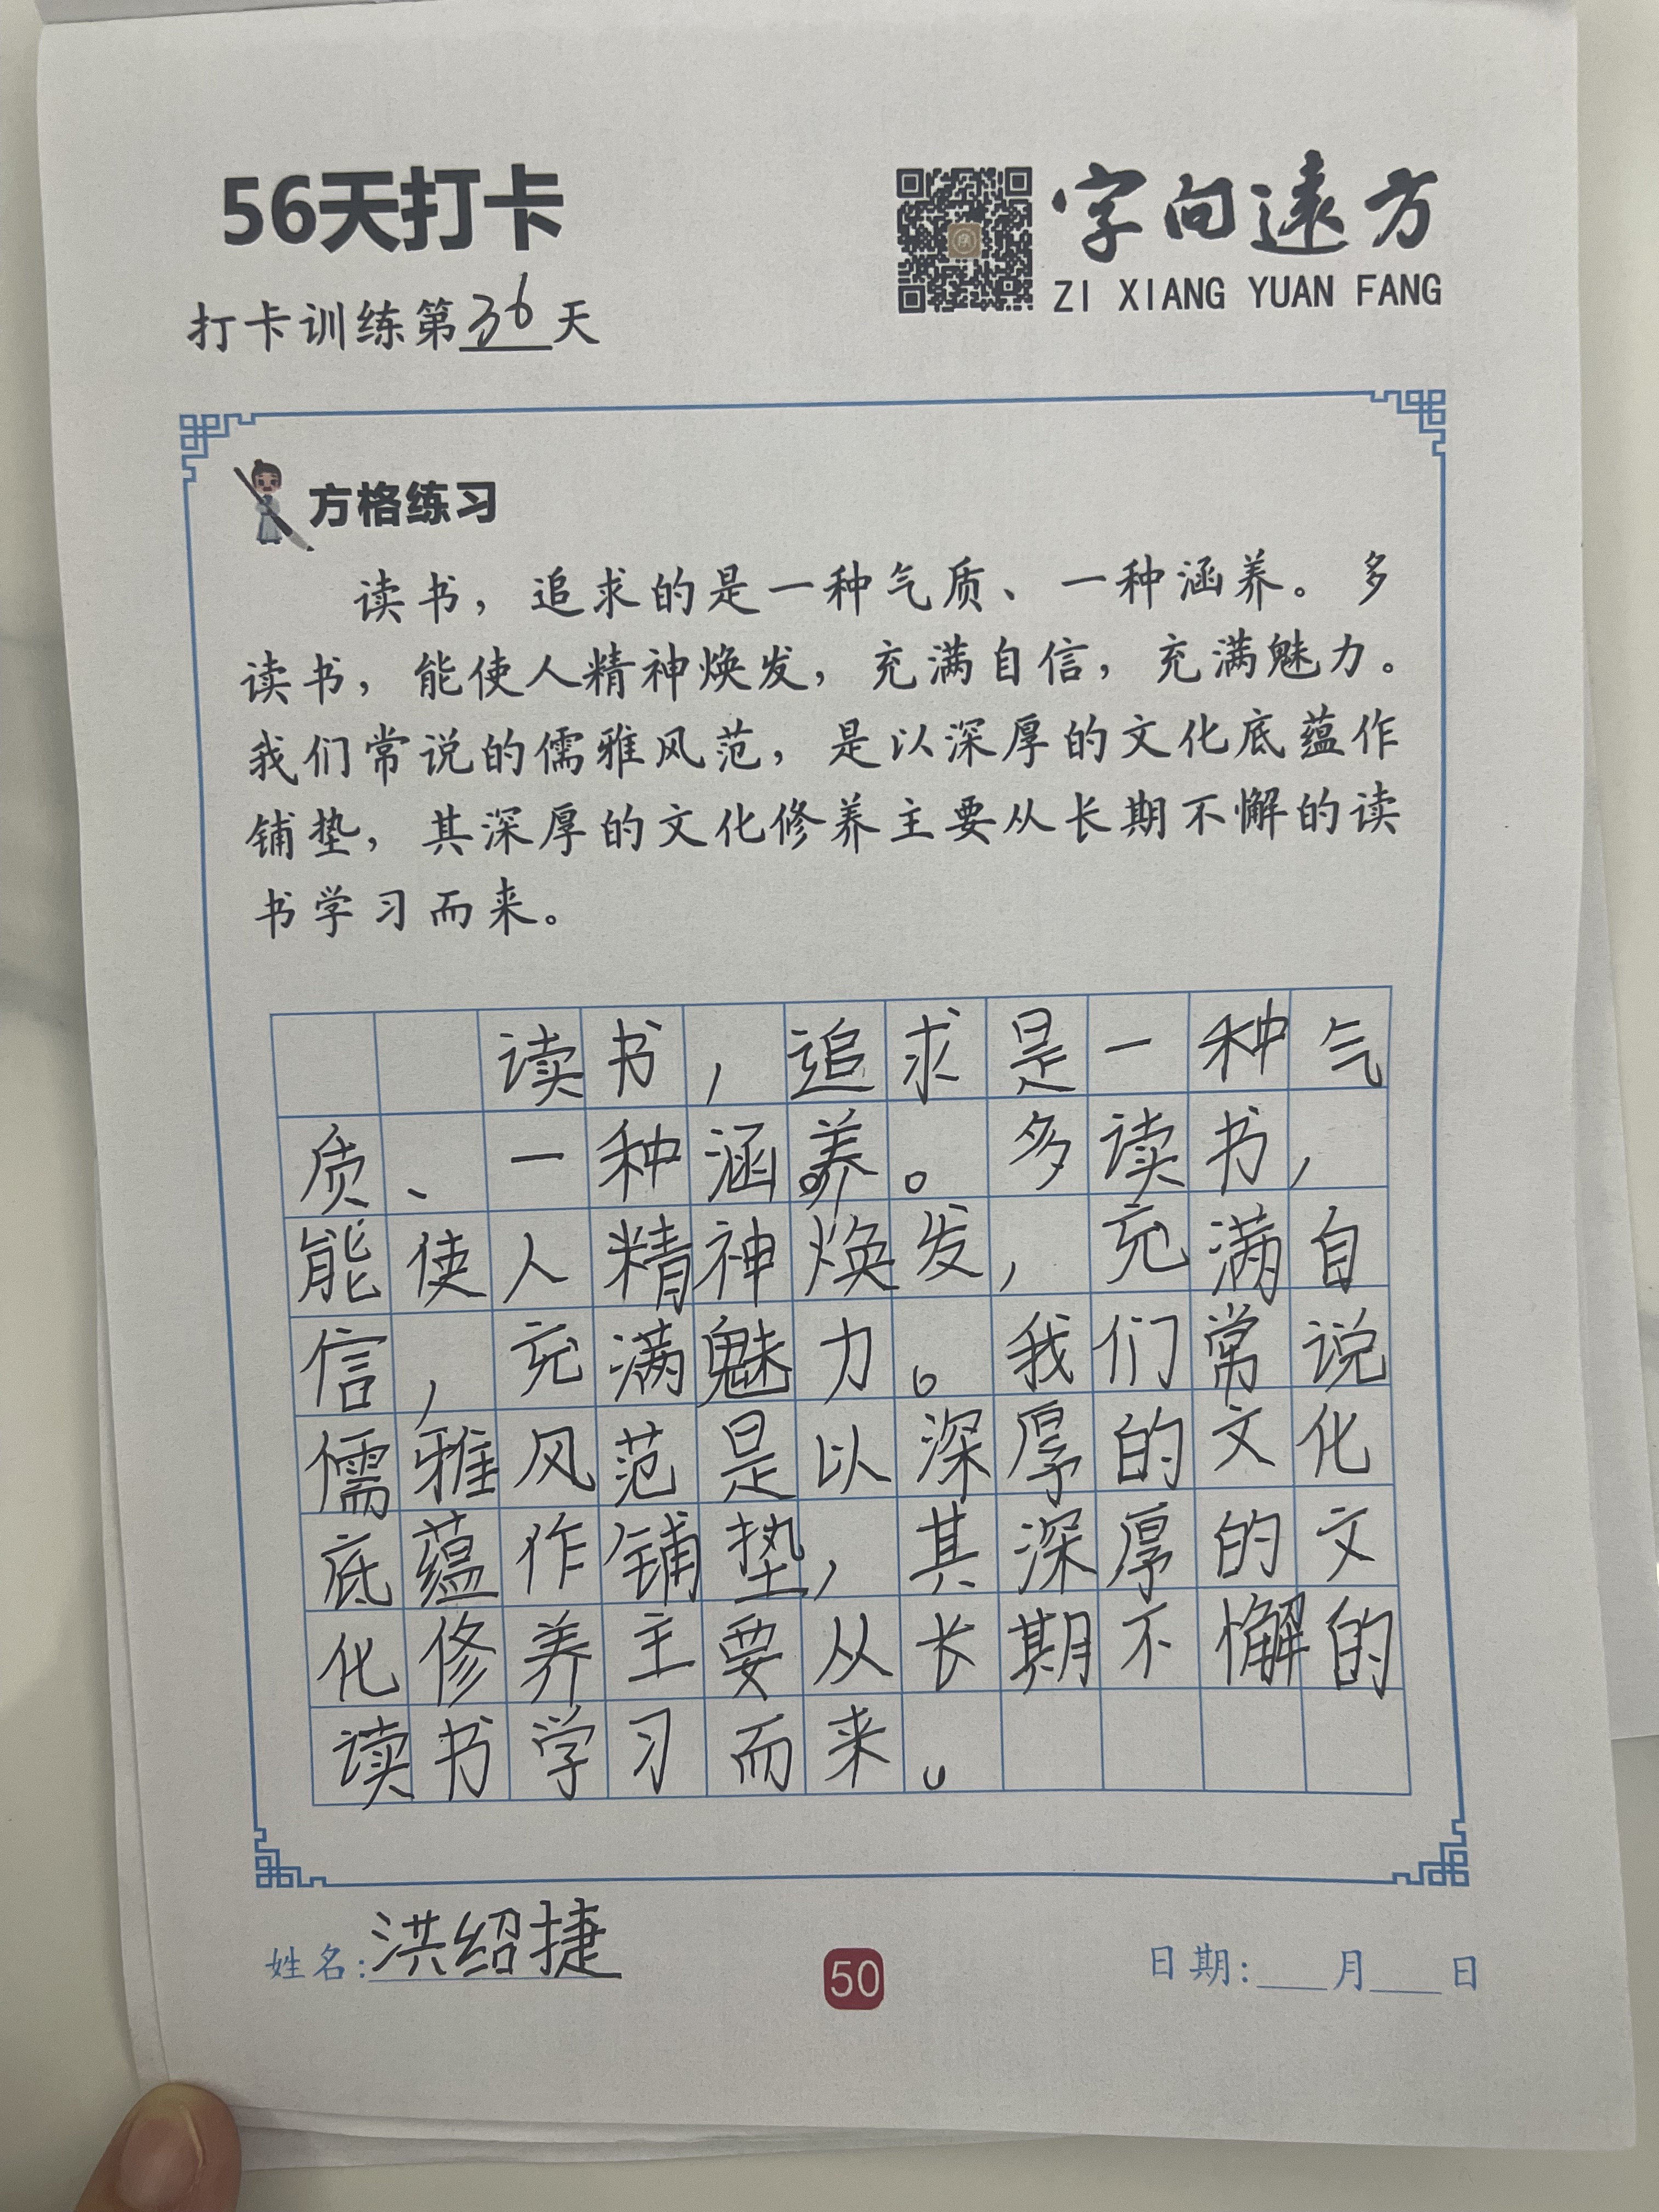 56天打卡
字向远方
ZI XIANG YUAN FANG
打卡训练第36天
方格练习
读书，追求的是一种气质、一种涵养。多
读书，能使人精神焕发，充满自信，充满魅力。
我们常说的儒雅风范，是以深厚的文化底蕴作
铺垫，其深厚的文化修养主要从长期不懈的读
书学习而来。
读书，追求是一种气
质、一种涵养。多读书，
能使人精神焕发，充满自
信，充满魅力。我们常说
儒雅风范是以深厚的文化
底蕴作铺垫，其深厚的文
化修养主要从长期不懈的
读书学习而来。
姓名：洪绍捷
50
日期：___月___日